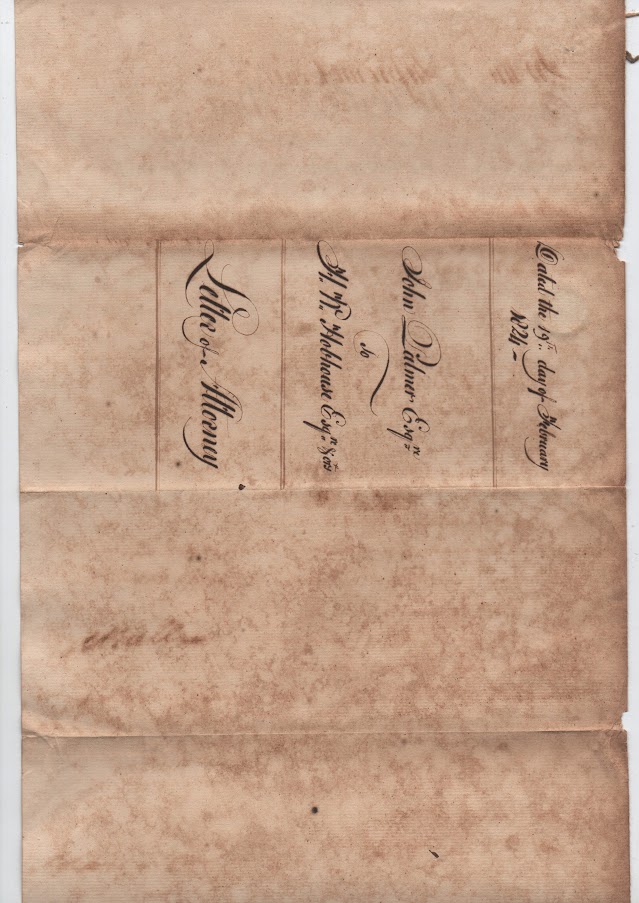 Dated the 19th. day of February
1824 –
John Palmer Esqre
to
H. W. Hobhouse Esqr. & ors
Letter of Attorney